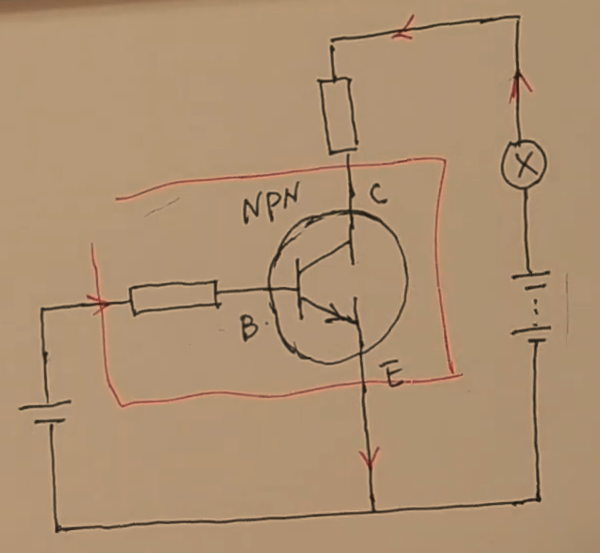 NPN
C
B.
E